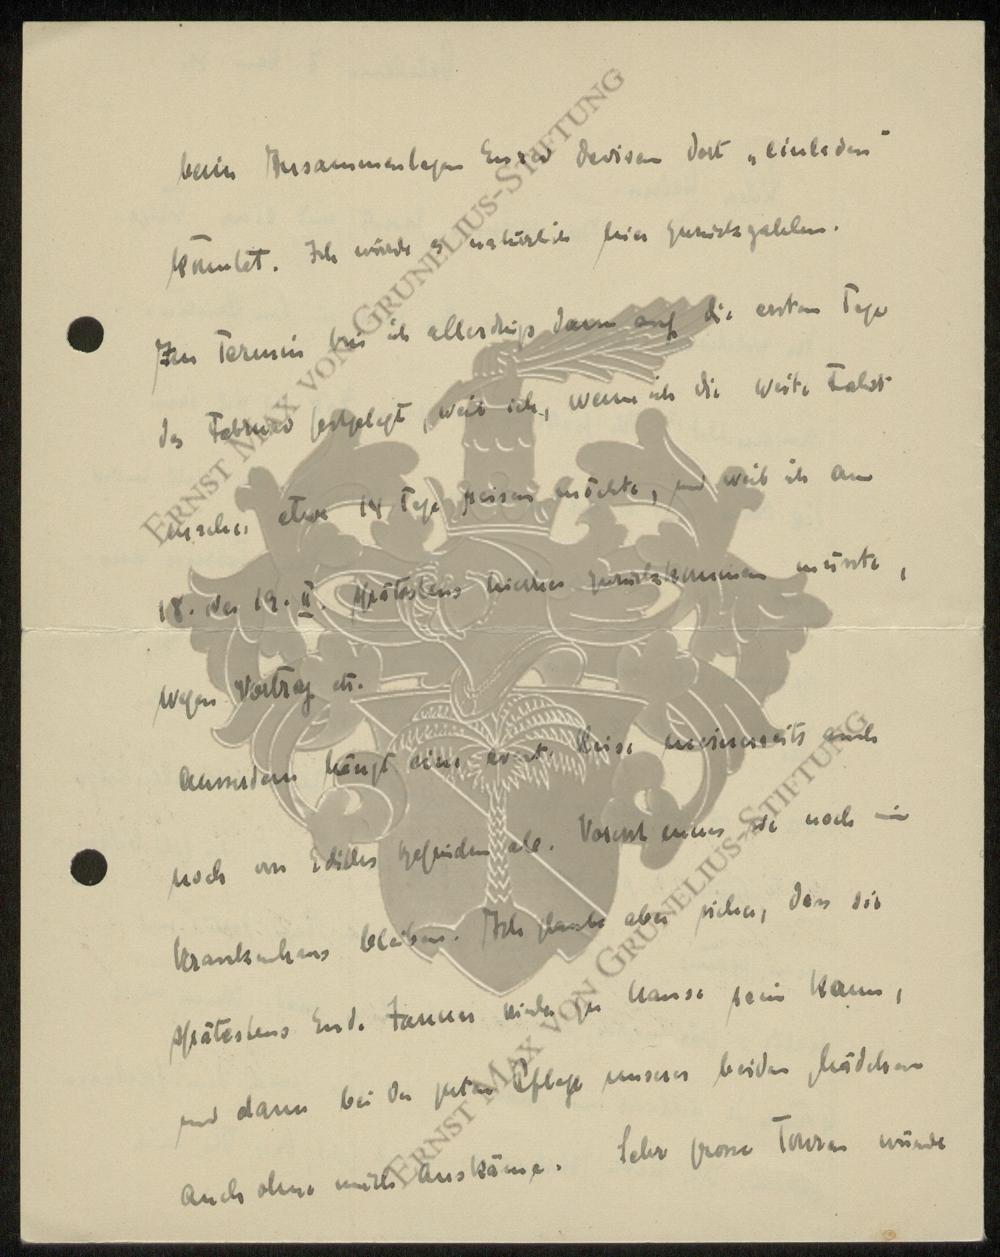 beim Zusammenlegen Eurer Devisen dort „einladen"
könntet. Ich würde es natürlich hier zurückzahlen.
Im Termin bin ich allerdings dann auf die ersten Tage
des Februar festgelegt, weil ich, wenn ich die weite Fahrt
mache, etwa 14 Tage reisen möchte, und weil ich am
18. oder 19. II. spätestens hierher zurückkommen müsste,
wegen Vortrag etc.
Ausserdem hängt eine evnt. Reise meinerseits auch
noch von Ediths Befinden ab. Vorerst muss sie noch im
Krankenhaus bleiben. Ich glaube aber sicher, dass sie
spätestens Ende Januar wieder zu Hause sein kann,
und dann bei der guten Pflege unserer beiden Mädchen
auch ohne mich auskäme. Sehr grosse Touren würde
ERNST MAX VON GRUNELIUS-STIFTUNG
ERNST MAX VON GRUNELIUS-STIFTUNG